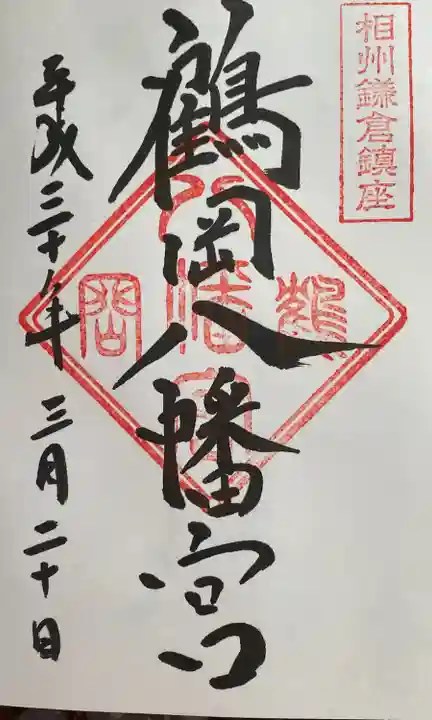 相州鎌倉鎮座
鶴岡八幡宮
平成三十年三月二十日